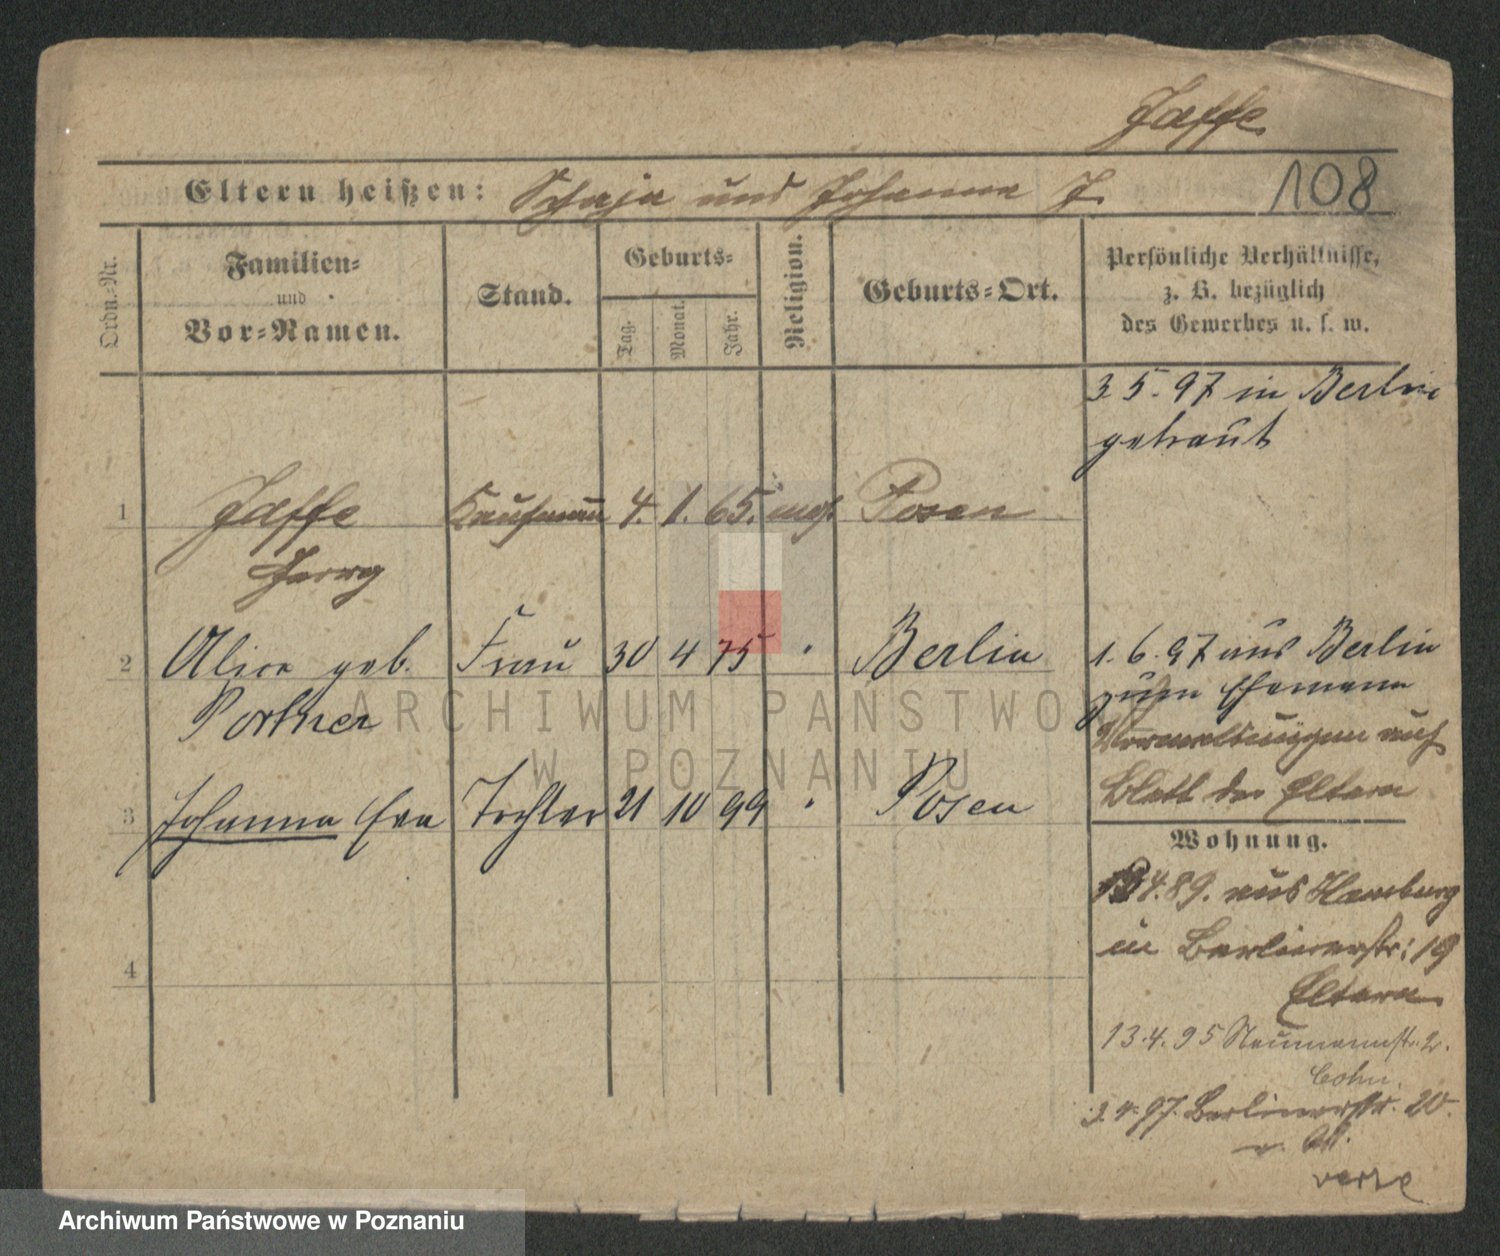 Jaffe
Eltern heißen: Schaja und Johanna J.
108
Ordn.-Nr.
Familien-
und
Vor-Namen.
Stand.
Geburts-
Tag.
Monat.
Jahr.
Religion.
Geburts-Ort.
Persönliche Verhältnisse,
z. B. bezüglich
des Gewerbes u. s. w.
3.5.97 in Berlin
getraut
1 Jaffe Kaufmann 4. 1. 65. mos. Posen
Georg
2 Alice geb. Frau 30 4 75 " Berlin
Portner
1.6.97 aus Berlin
zum Ehemann
auf
Blatt der Eltern
3 Johanna Eva Tochter 21 10 99 " Posen
4
Wohnung.
4.89. aus Hamburg
in Berlinerstr: 19
Eltern
13.4.95 Naumannstr. 2.
Cohn.
3.4.97. Berlinerstr. 20.
verte
ARCHIWUM PAŃSTWOWE
W POZNANIU
Archiwum Państwowe w Poznaniu